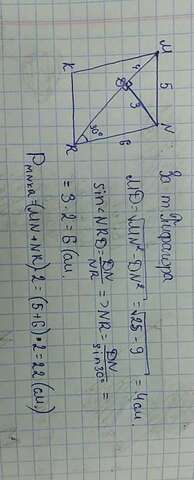 M
K
4
5
D
3
N
R
30°
6
За т Піфагора
MD = √MN² - DN² = √25 - 9 = 4 см
sin < NRD = DN/NR => NR = DN/sin30° =
= 3 · 2 = 6 (см.
P MNKR = (MN + NR) · 2 = (5 + 6) · 2 = 22 (см)